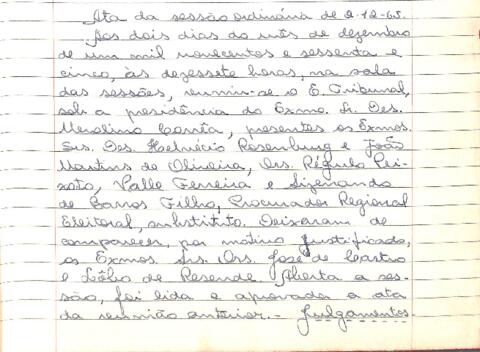 Ata da sessão ordinária de 2-12-65.
Aos dois dias do mês de dezembro
de um mil novecentos e sessenta e
cinco, às dezessete horas, na sala
das sessões, reuniu-se o E. Tribunal,
sob a presidência do Exmo. Sr. Des.
Merolino Corrêa, presentes os Exmos.
Srs. Des. Helvécio Rosenburg e João
Martins de Oliveira, Drs. Régulo Pei-
xoto, Valle Ferreira e Sizenando
de Barros Filho, Procurador Regional
Eleitoral, substituto. Deixaram de
comparecer, por motivo justificado,
os Exmos. Srs. Drs. José de Castro
e Lélio de Resende. Aberta a ses-
são, foi lida e aprovada a ata
da reunião anterior. - Julgamentos